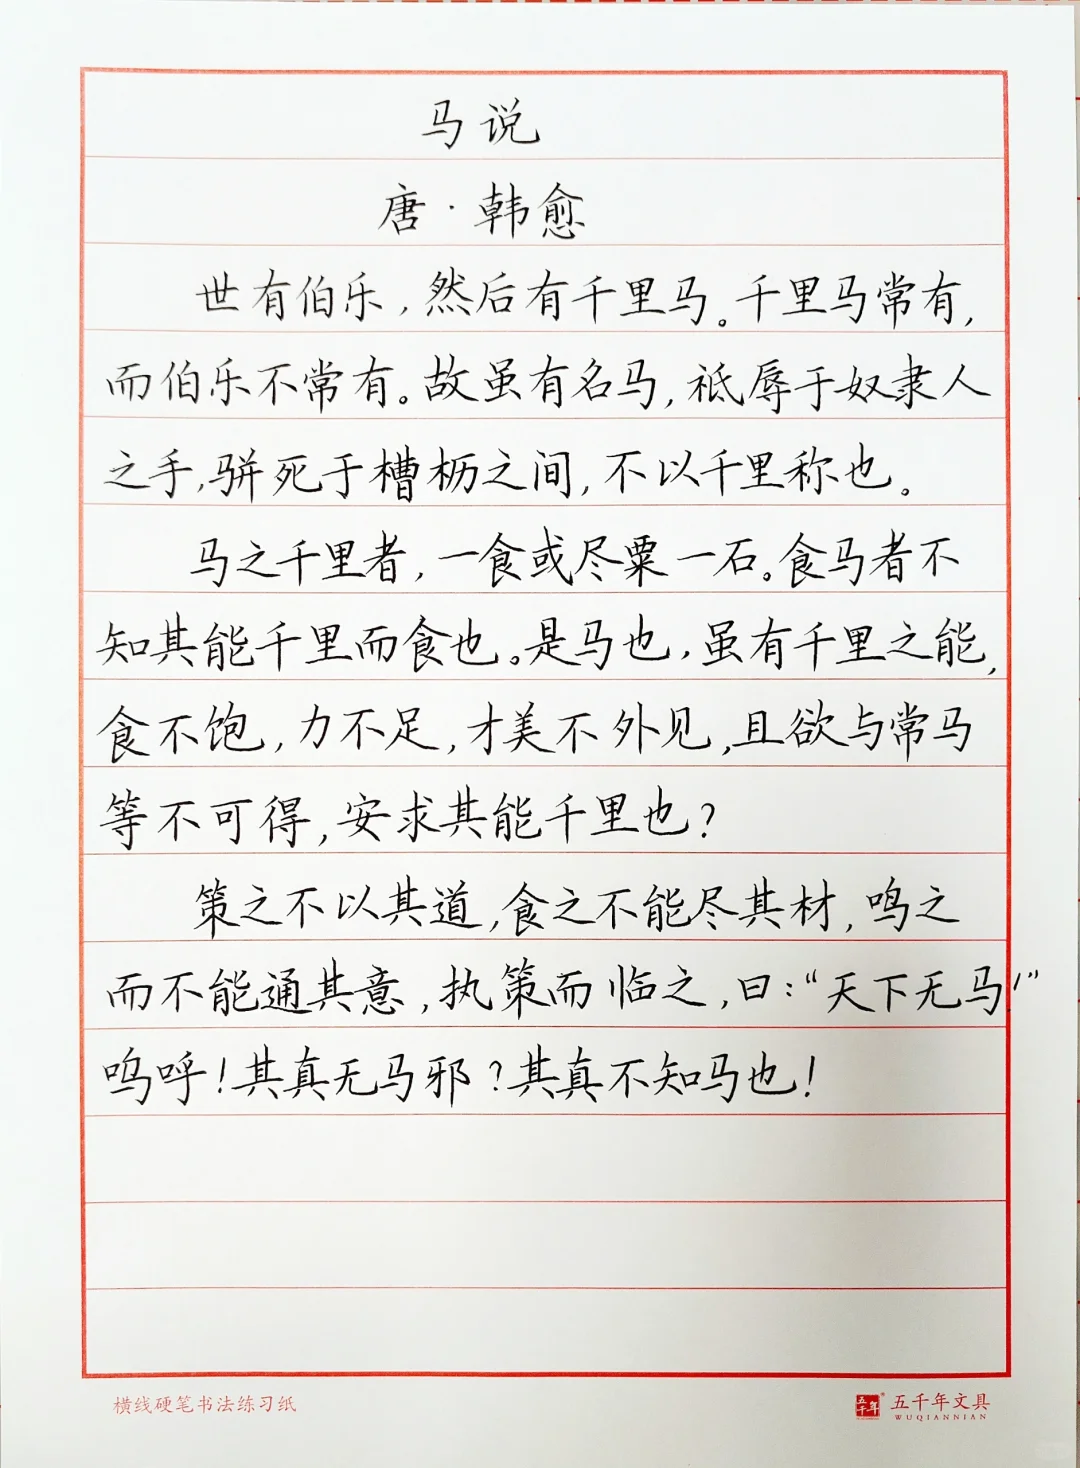 马说
唐·韩愈
世有伯乐，然后有千里马。千里马常有，
而伯乐不常有。故虽有名马，祗辱于奴隶人
之手，骈死于槽枥之间，不以千里称也。
马之千里者，一食或尽粟一石。食马者不
知其能千里而食也。是马也，虽有千里之能，
食不饱，力不足，才美不外见，且欲与常马
等不可得，安求其能千里也？
策之不以其道，食之不能尽其材，鸣之
而不能通其意，执策而临之，曰：“天下无马！”
呜呼！其真无马邪？其真不知马也！
横线硬笔书法练习纸
五千年 五千年文具
WUQIANNIAN